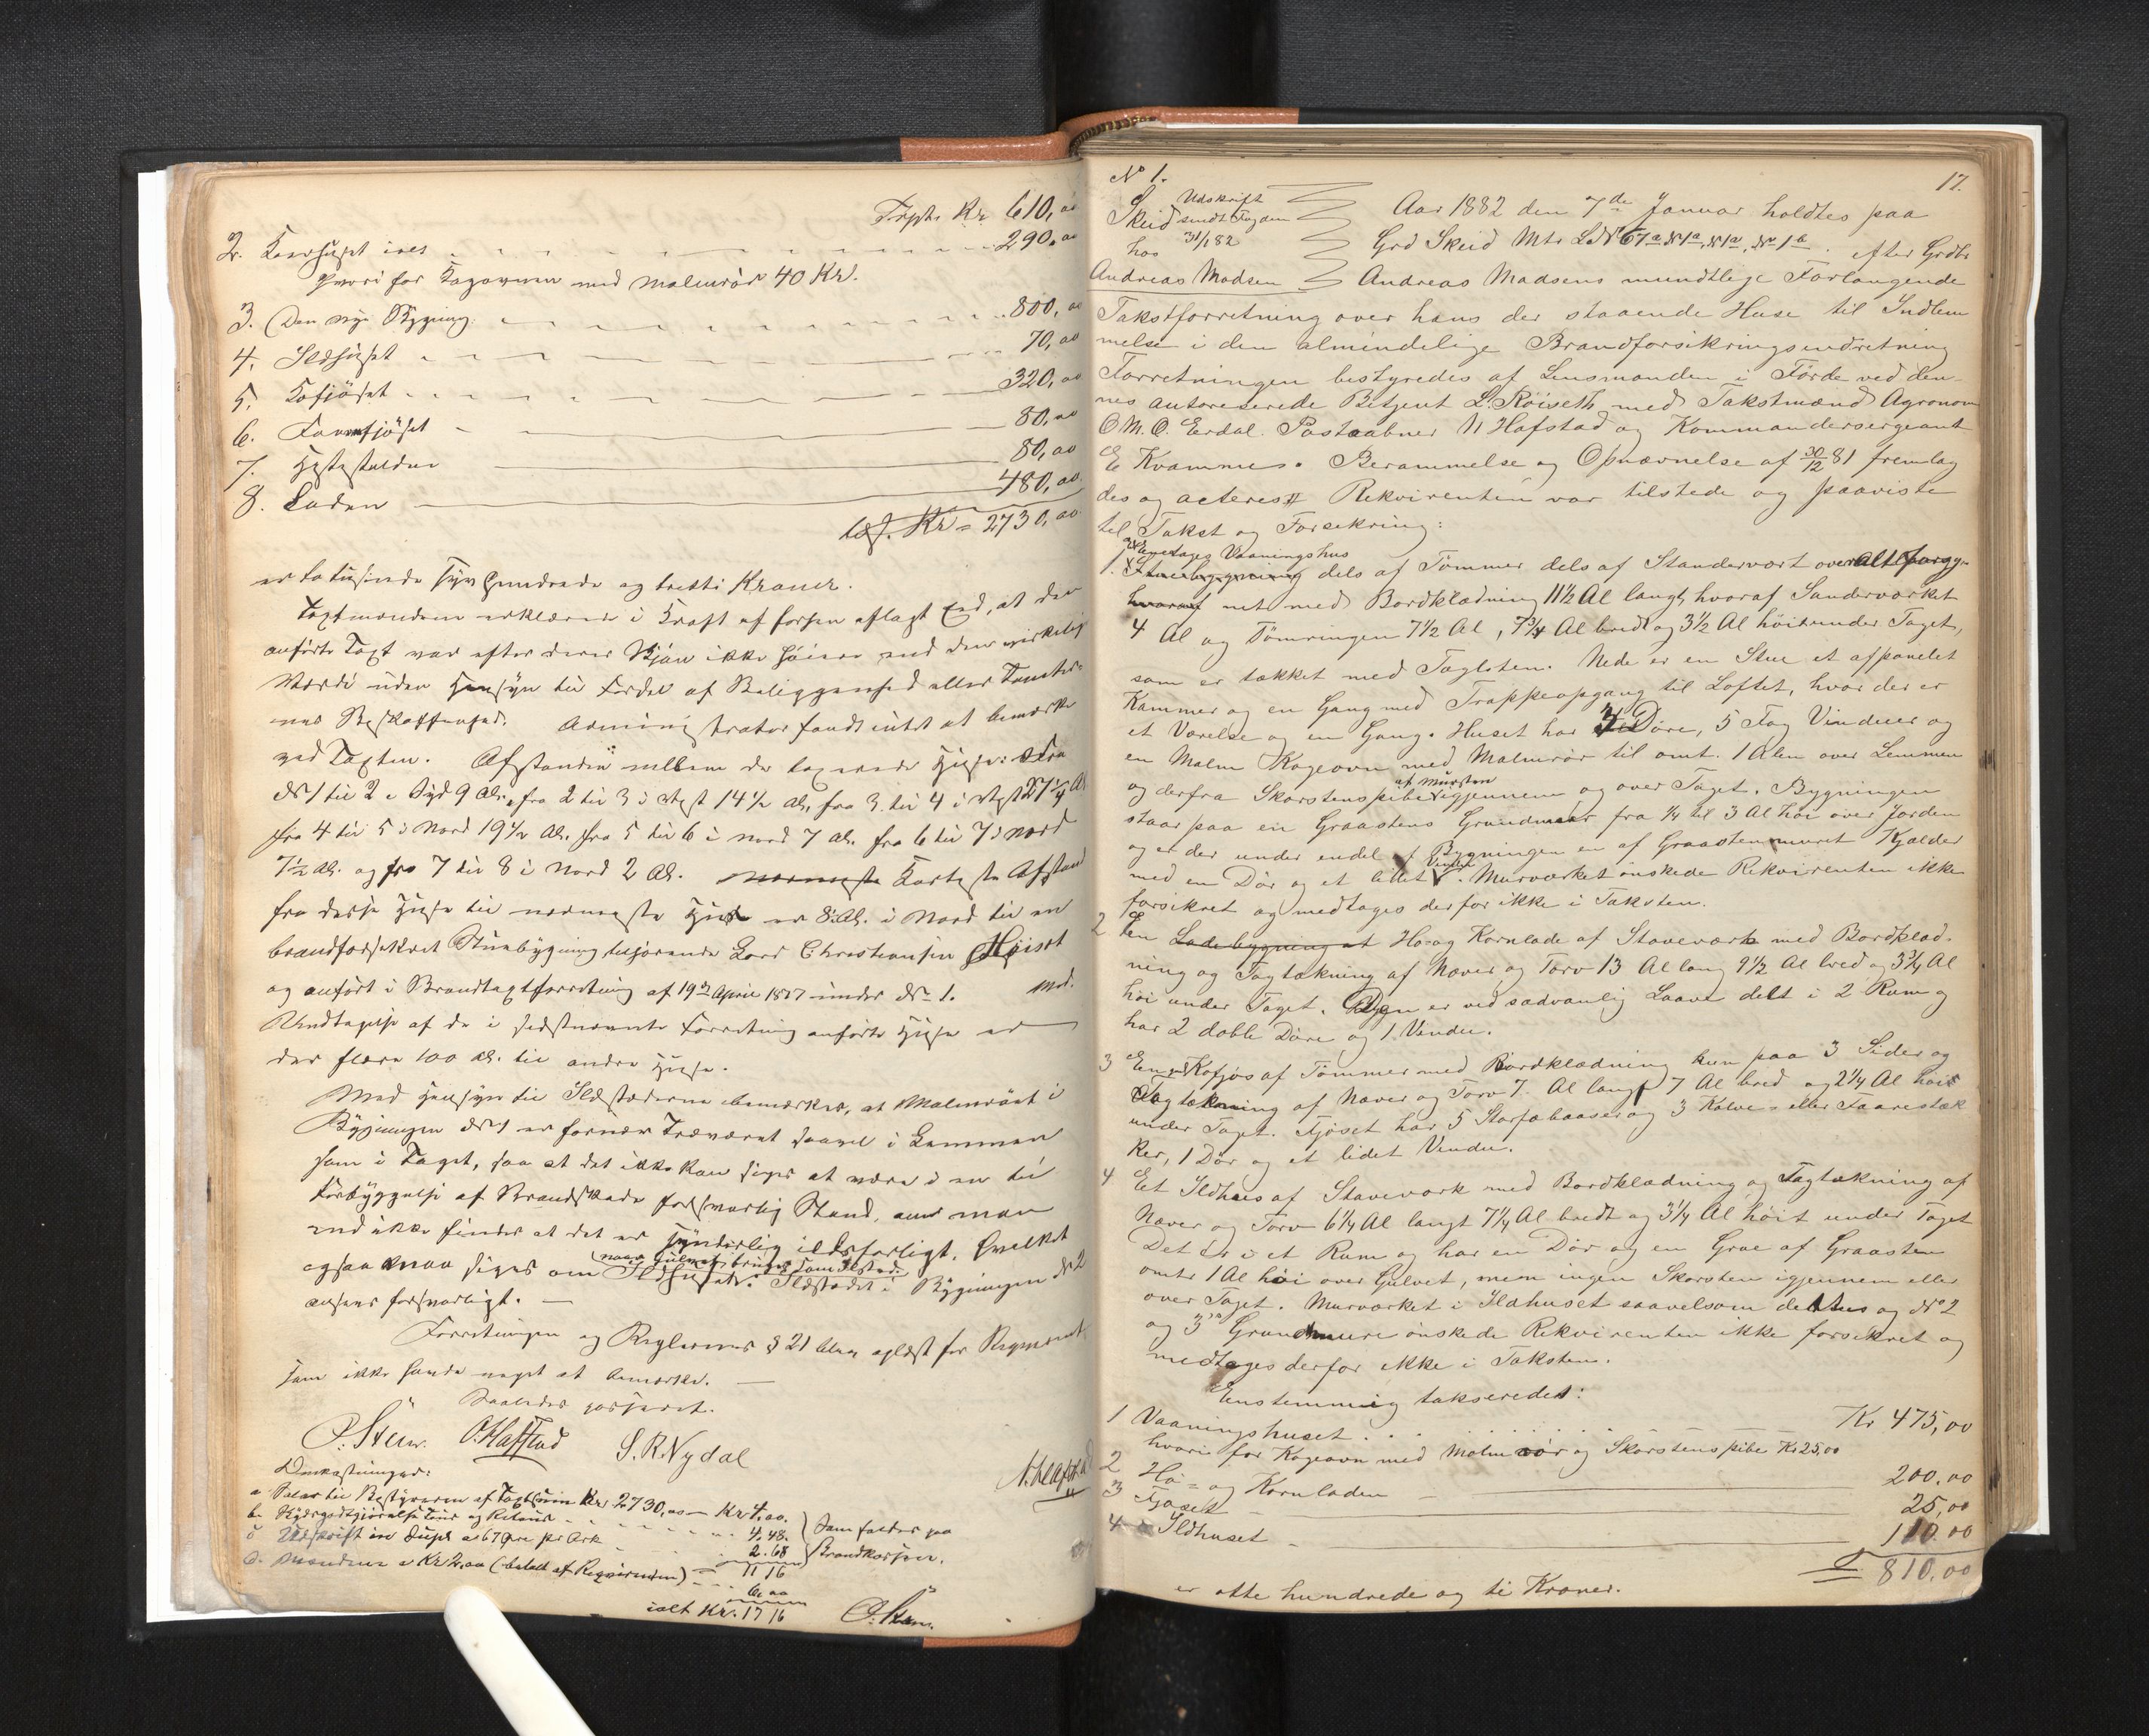 Trpt. Kr. 610,00
2. Kaarhuset ives 290,00
hvori for Kogeovnen med Malmrør 40 Kr.
3. Den nye Bygning 800,00
4. Ildhuset 70,00
5. Kofjøset 320,00
6. Faarefjøset 80,00
7. Hestestalden 80,00
8. Laden 480,00
Kr = 2730,00
er to tusinde syv hundrede og tretti Kroner.
Taxtmændene erklærede i Kraft af forhen aflagt Eed, at den
anførte Taxt var efter deres Skjøn ikke høiere end den virkelige
Værdi uden Hensyn til Fordel af Beliggenhed eller Tomter-
nes Beskaffenhed. Administrator fandt intet at bemærke
ved Taxten. Afstanden mellem de taxerede Huse: Fra
No 1 til 2 i Syd 9 Al., fra 2 til 3 i Vest 14 1/2 Al, fra 3 til 4 i Vest 27 1/4 Al
fra 4 til 5 i Nord 19 1/2 Al. fra 5 til 6 i Nord 7 Al. fra 6 til 7 i Nord
7 1/2 Al. og fra 7 til 8 i Nord 2 Al. Korteste Afstand
fra disse Huse til nærmeste Huse er 8 Al. i Nord til en
brandforsikret Stuebygning tilhørende Lars Christensen Høiset
og anført i Brandtaxtforretning af 19de April 1877 under No 1. Med
Undtagelse af de i sidstnævnte Forretning anførte Huse er
der flere 100 Al. til andre Huse.
Med Hensyn til Ildstederne bemærkes, at Malmrøret i
Bygningen No 1 er fornær Træværet saavel i Lemmen
som i Taget, saa at det ikke kan siges at være i en til
Forebyggelse af Brandskade forsvarlig Stand, om man
end ikke finder at det er synderlig ildsfarligt. Hvilket
ogsaa maa siges om Ildhuset. Ildstedet i Bygningen No 2
naar Gulvet bruges som Ilsted.
ansees forsvarligt. —
Forretningen og Reglernes § 21 blev oplæst for Reqvirenten
som ikke havde noget at bemærke. —
Saaledes passeret.
P. Steen. O. Hafstad S. R. Nydal
N. Hafstad
Omkostninger:
a. Salær til Bestyreren af Taxtsum Kr. 2730,00 — Kr 4,00.
b. Skydsgodtgjørelse Tour og Retour 4,48. som falder paa
c. Udskrift in dupl a 67 Øre pr Ark 2.68 Brandkassen.
11 16
d. Mændene a Kr. 2,00 (betalt af Reqvirenten) 6,00
ialt Kr. 17 16 P. Steen.
No 1. 17.
Skeid Udskrift
sendt Fogden
31/1 82
hos
Andreas Madsen
Aar 1882 den 7de Januar holdtes paa
Grd Skeid Mtr LNo 67a No 1a, No 1a, No 1b. efter Grdbr
Andreas Madsens mundtlige Forlangende
Takstforretning over hans der staaende Huse til Indlem
melse i den almindelige Brandforsikringsindretning
Forretningen bestyredes af Lensmanden i Førde ved den-
nes autoriserede Betjent L. Røiseth med Takstmænd Agronom
O M. O. Eerdal. Postaabner N Hafstad og Kommandersergeant
E Kvamme. Berammelse og Opnævnelse af 30/12 81 fremlag
des og acteres. Rekvirenten var tilstede og paaviste
til Takst og Forsikring:
1. Et enetages Vaaningshus
Stuebygning dels af Tømmer dels af Standervært overalt forsy-
hvoraf net med Bordklædning 11 1/2 Al langt, hvoraf Sanderværket
4 Al og Tømringen 7 1/2 Al, 7 3/4 Al bredt og 3 1/2 Al høit under Taget,
som er tækket med Taglsten. Nede er en Stue et afpanelet
Kammer og en Gang med Trappeopgang til Loftet, hvor der er
et Værelse og en Gang. Huset har 4 Døre, 5 Fag Vinduer og
en Malm Kogeovn med Malmrør til omt. 1 Alen over Lemmen
og derfra Skorstenspibe af Mursten igjennem og over Taget. Bygningen
staar paa en Graastens Grundmuur fra 1/4 til 3 Al høi over Jorden
og er der under endel af Bygningen en af Graasten muret Kjælder
med en Dør og et lidet Vindu. Murværket ønskede Rekvirenten ikke
forsikret og medtages derfor ikke i Taksten.
2 En Ladebygning at Hø og Kornlade af Staveværk med Bordklæd-
ning og Tagtækning af Næver og Torv 13 Al lang 9 1/2 Al bred og 3 3/4 Al
høi under Taget. Den er ved sædvanlig Laave delt i 2 Rum og
har 2 doble Døre og 1 Vindu.
3 En Kofjøs af Tømmer med Bordklædning kun paa 3 Sider og
Tagtækning af Næver og Torv 7. Al langt 7 Al bred og 2 1/4 Al høit
under Taget. Fjøset har 5 Storfæbaaser og 3 Kalve- eller Faarestæk
ker, 1 Dør og et lidet Vindu.
4 Et Ildhuus af Staveværk med Bordklædning og Tagtækning af
Næver og Torv 6 1/4 Al langt 7 1/4 Al bredt og 3 1/4 Al høit under Taget
Det er i et Rum og har en Dør og en Grue af Graasten
omtr 1 Al høi over Gulvet, men ingen Skorsten igjennem eller
over Taget. Murværket i Ildhuset saavelsom dettes og No 2
og 3s Grundmuure ønskede Rekvirenten ikke forsikret og
medtages derfor ikke i Taksten.
Enstemmig takseredes:
1 Vaaningshuset Kr 475,00
hvori for Kogeovn med Malmrør og Skorstenspibe Kr 25,00
2 Hø- og Kornladen 200,00
3 Fjøset 25,00
4 Ildhuset 110.00
810,00
er otte hundrede og ti Kroner.